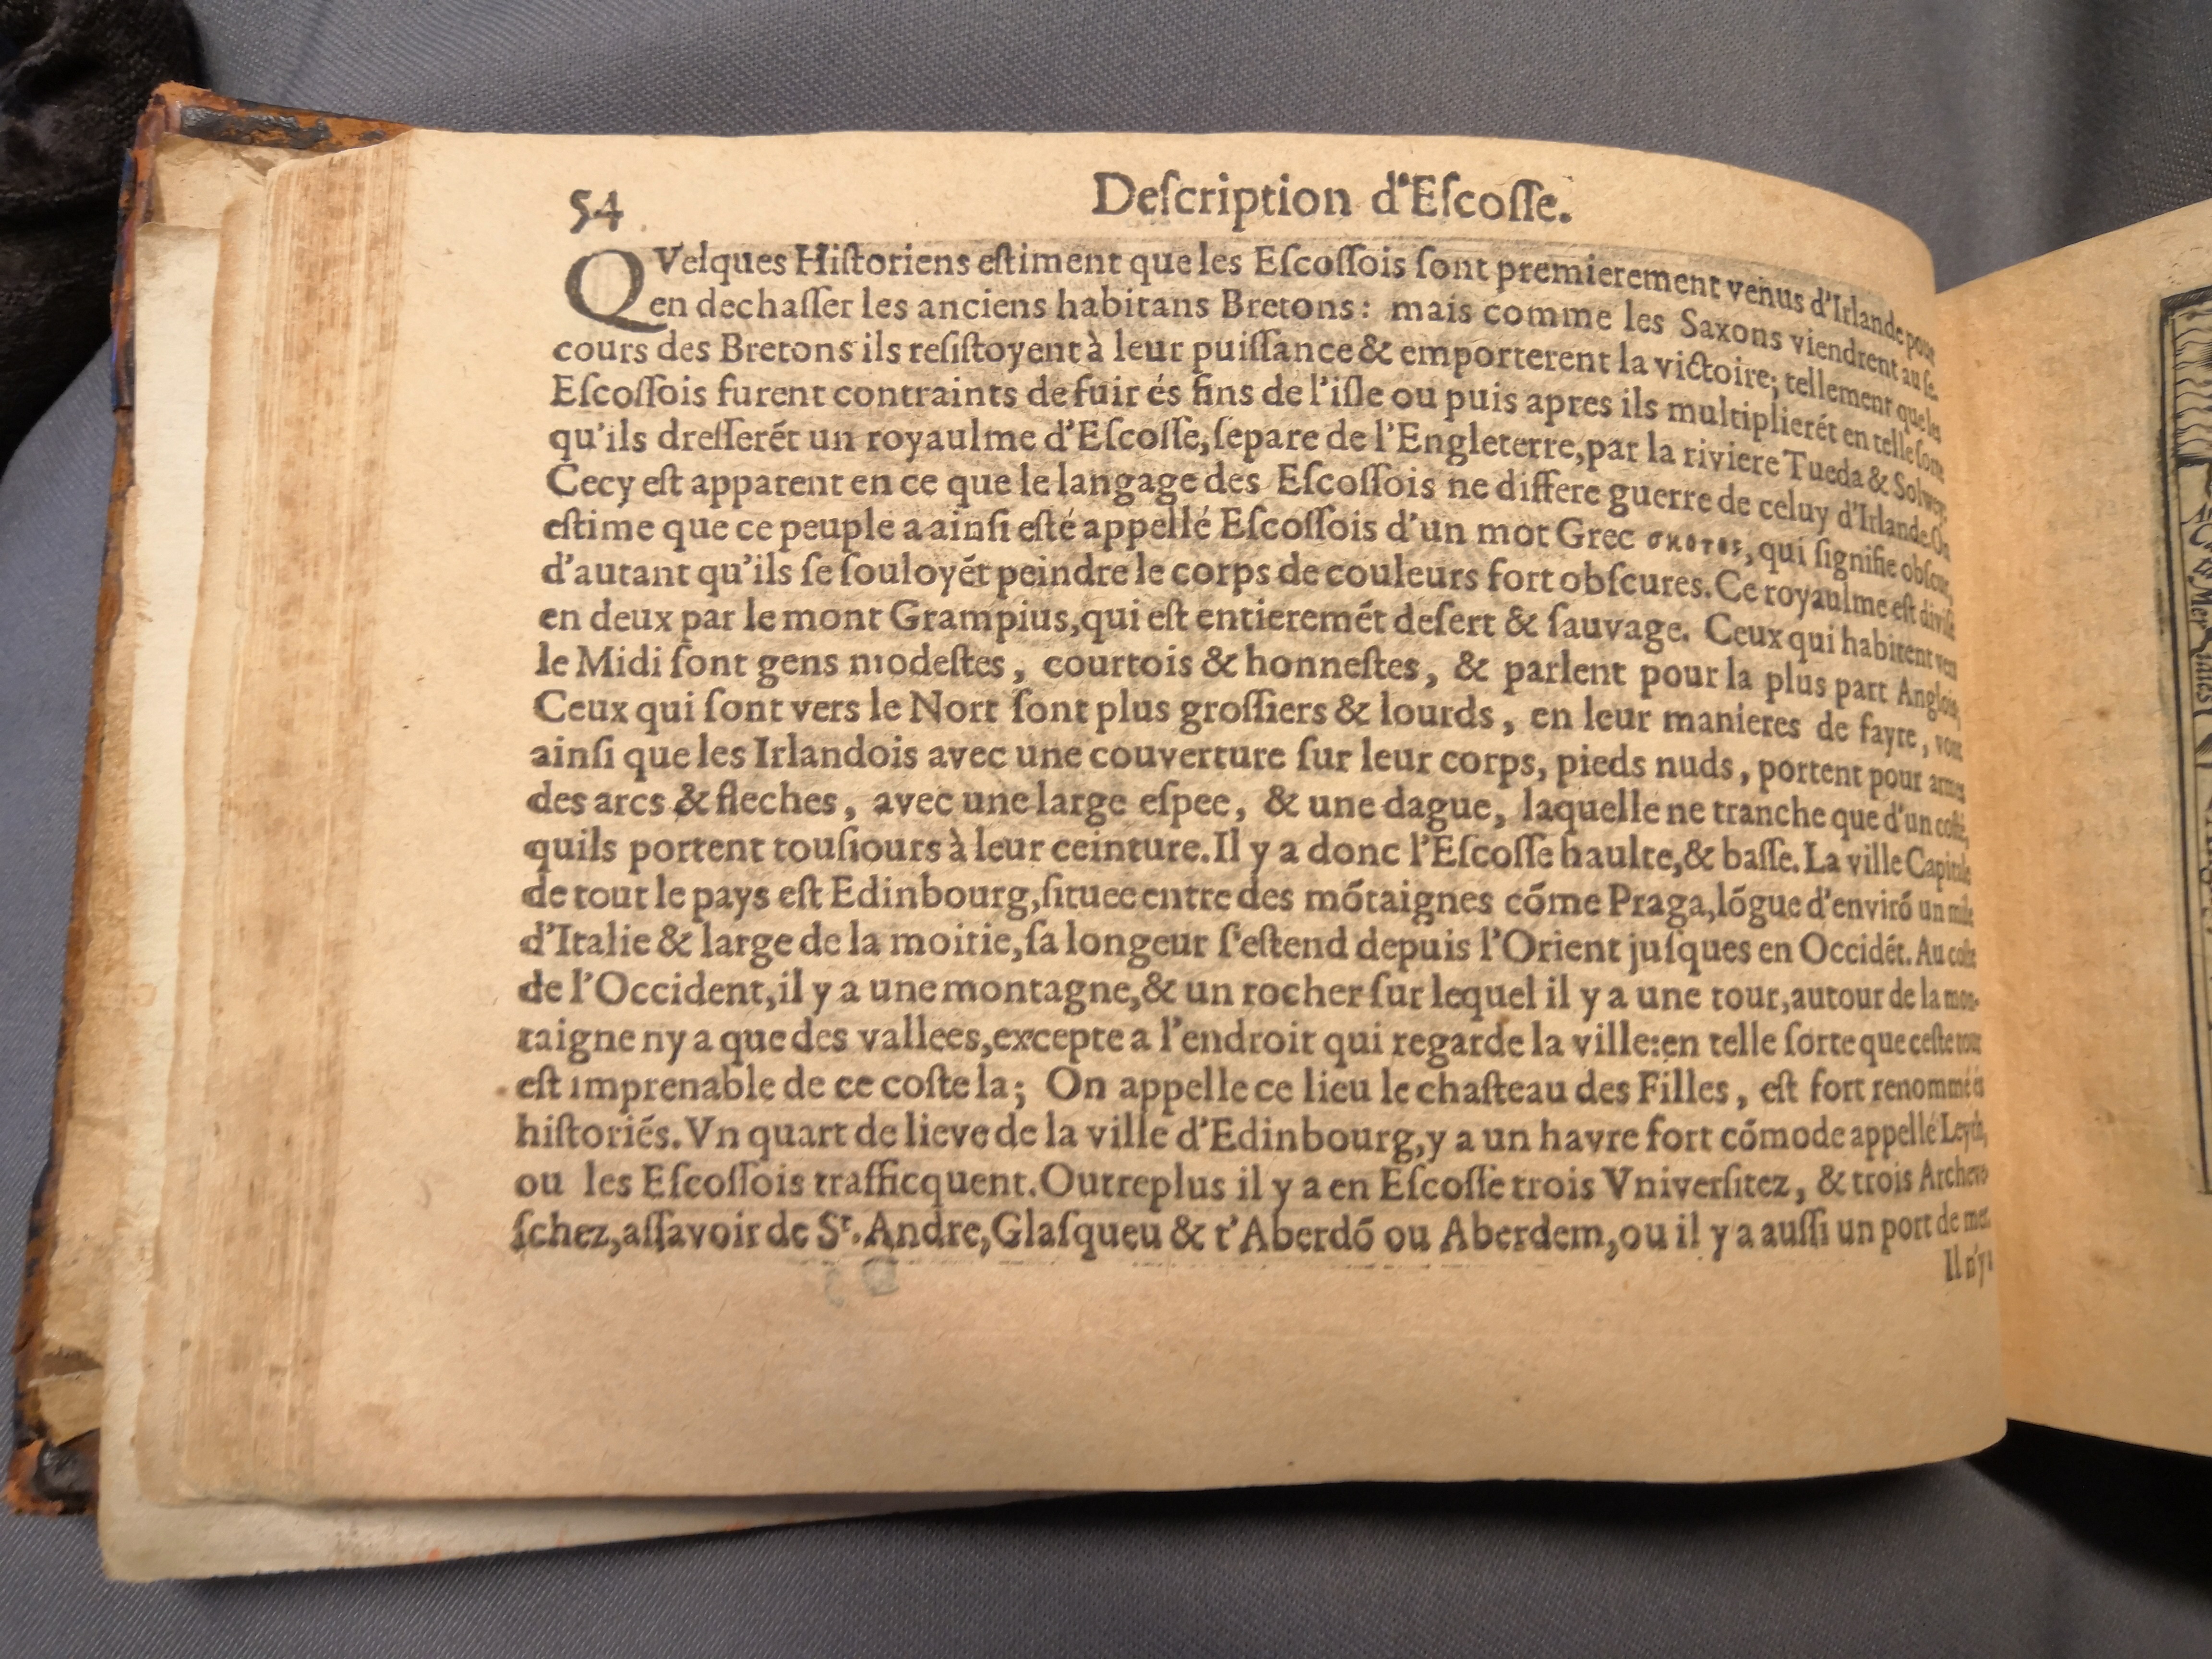 54 Deſcription d'Eſcoſſe.
QVelques Hiſtoriens eſtiment que les Eſcoſſois ſont premierement venus d'Irlande pour
en dechaſſer les anciens habitans Bretons: mais comme les Saxons viendrent au ſe-
cours des Bretons ils reſiſtoyent à leur puiſſance & emporterent la victoire; tellement que les
Eſcoſſois furent contraints de fuir és fins de l'iſle ou puis apres ils multiplierét en telle ſorte
qu'ils dreſſerét un royaulme d'Eſcoſſe, ſepare de l'Engleterre, par la riviere Tueda & Solwey.
Cecy eſt apparent en ce que le langage des Eſcoſſois ne differe guerre de celuy d'Irlande. On
eſtime que ce peuple a ainſi eſté appellé Eſcoſſois d'un mot Grec σκοτος, qui ſignifie obſcur,
d'autant qu'ils ſe ſouloyét peindre le corps de couleurs fort obſcures. Ce royaulme eſt diviſé
en deux par le mont Grampius, qui eſt entieremét deſert & ſauvage. Ceux qui habitent vers
le Midi ſont gens modeſtes, courtois & honneſtes, & parlent pour la plus part Anglois,
Ceux qui ſont vers le Nort ſont plus groſſiers & lourds, en leur manieres de fayre, vont
ainſi que les Irlandois avec une couverture ſur leur corps, pieds nuds, portent pour armes
des arcs & fleches, avec une large eſpee, & une dague, laquelle ne tranche que d'un coſté,
quils portent touſiours à leur ceinture. Il y a donc l'Eſcoſſe haulte, & baſſe. La ville Capitale
de tout le pays eſt Edinbourg, ſituee entre des mótaignes cóme Praga, lógue d'enviró un mile
d'Italie & large de la moitie, ſa longeur ſ'eſtend depuis l'Orient juſques en Occidét. Au coſte
de l'Occident, il y a une montagne, & un rocher ſur lequel il y a une tour, autour de la mon-
taigne ny a que des vallees, excepte a l'endroit qui regarde la ville: en telle ſorte que ceſte tour
eſt imprenable de ce coſte la; On appelle ce lieu le chaſteau des Filles, eſt fort renommé és
hiſtoriés. Vn quart de lieve de la ville d'Edinbourg, y a un havre fort cómode appellé Leyth,
ou les Eſcoſſois trafficquent. Outreplus il y a en Eſcoſſe trois Vniverſitez, & trois Archeve-
ſchez, aſſavoir de Sᵗ. Andre, Glaſqueu & t'Aberdó ou Aberdem, ou il y a auſſi un port de mer.
Il n'y a